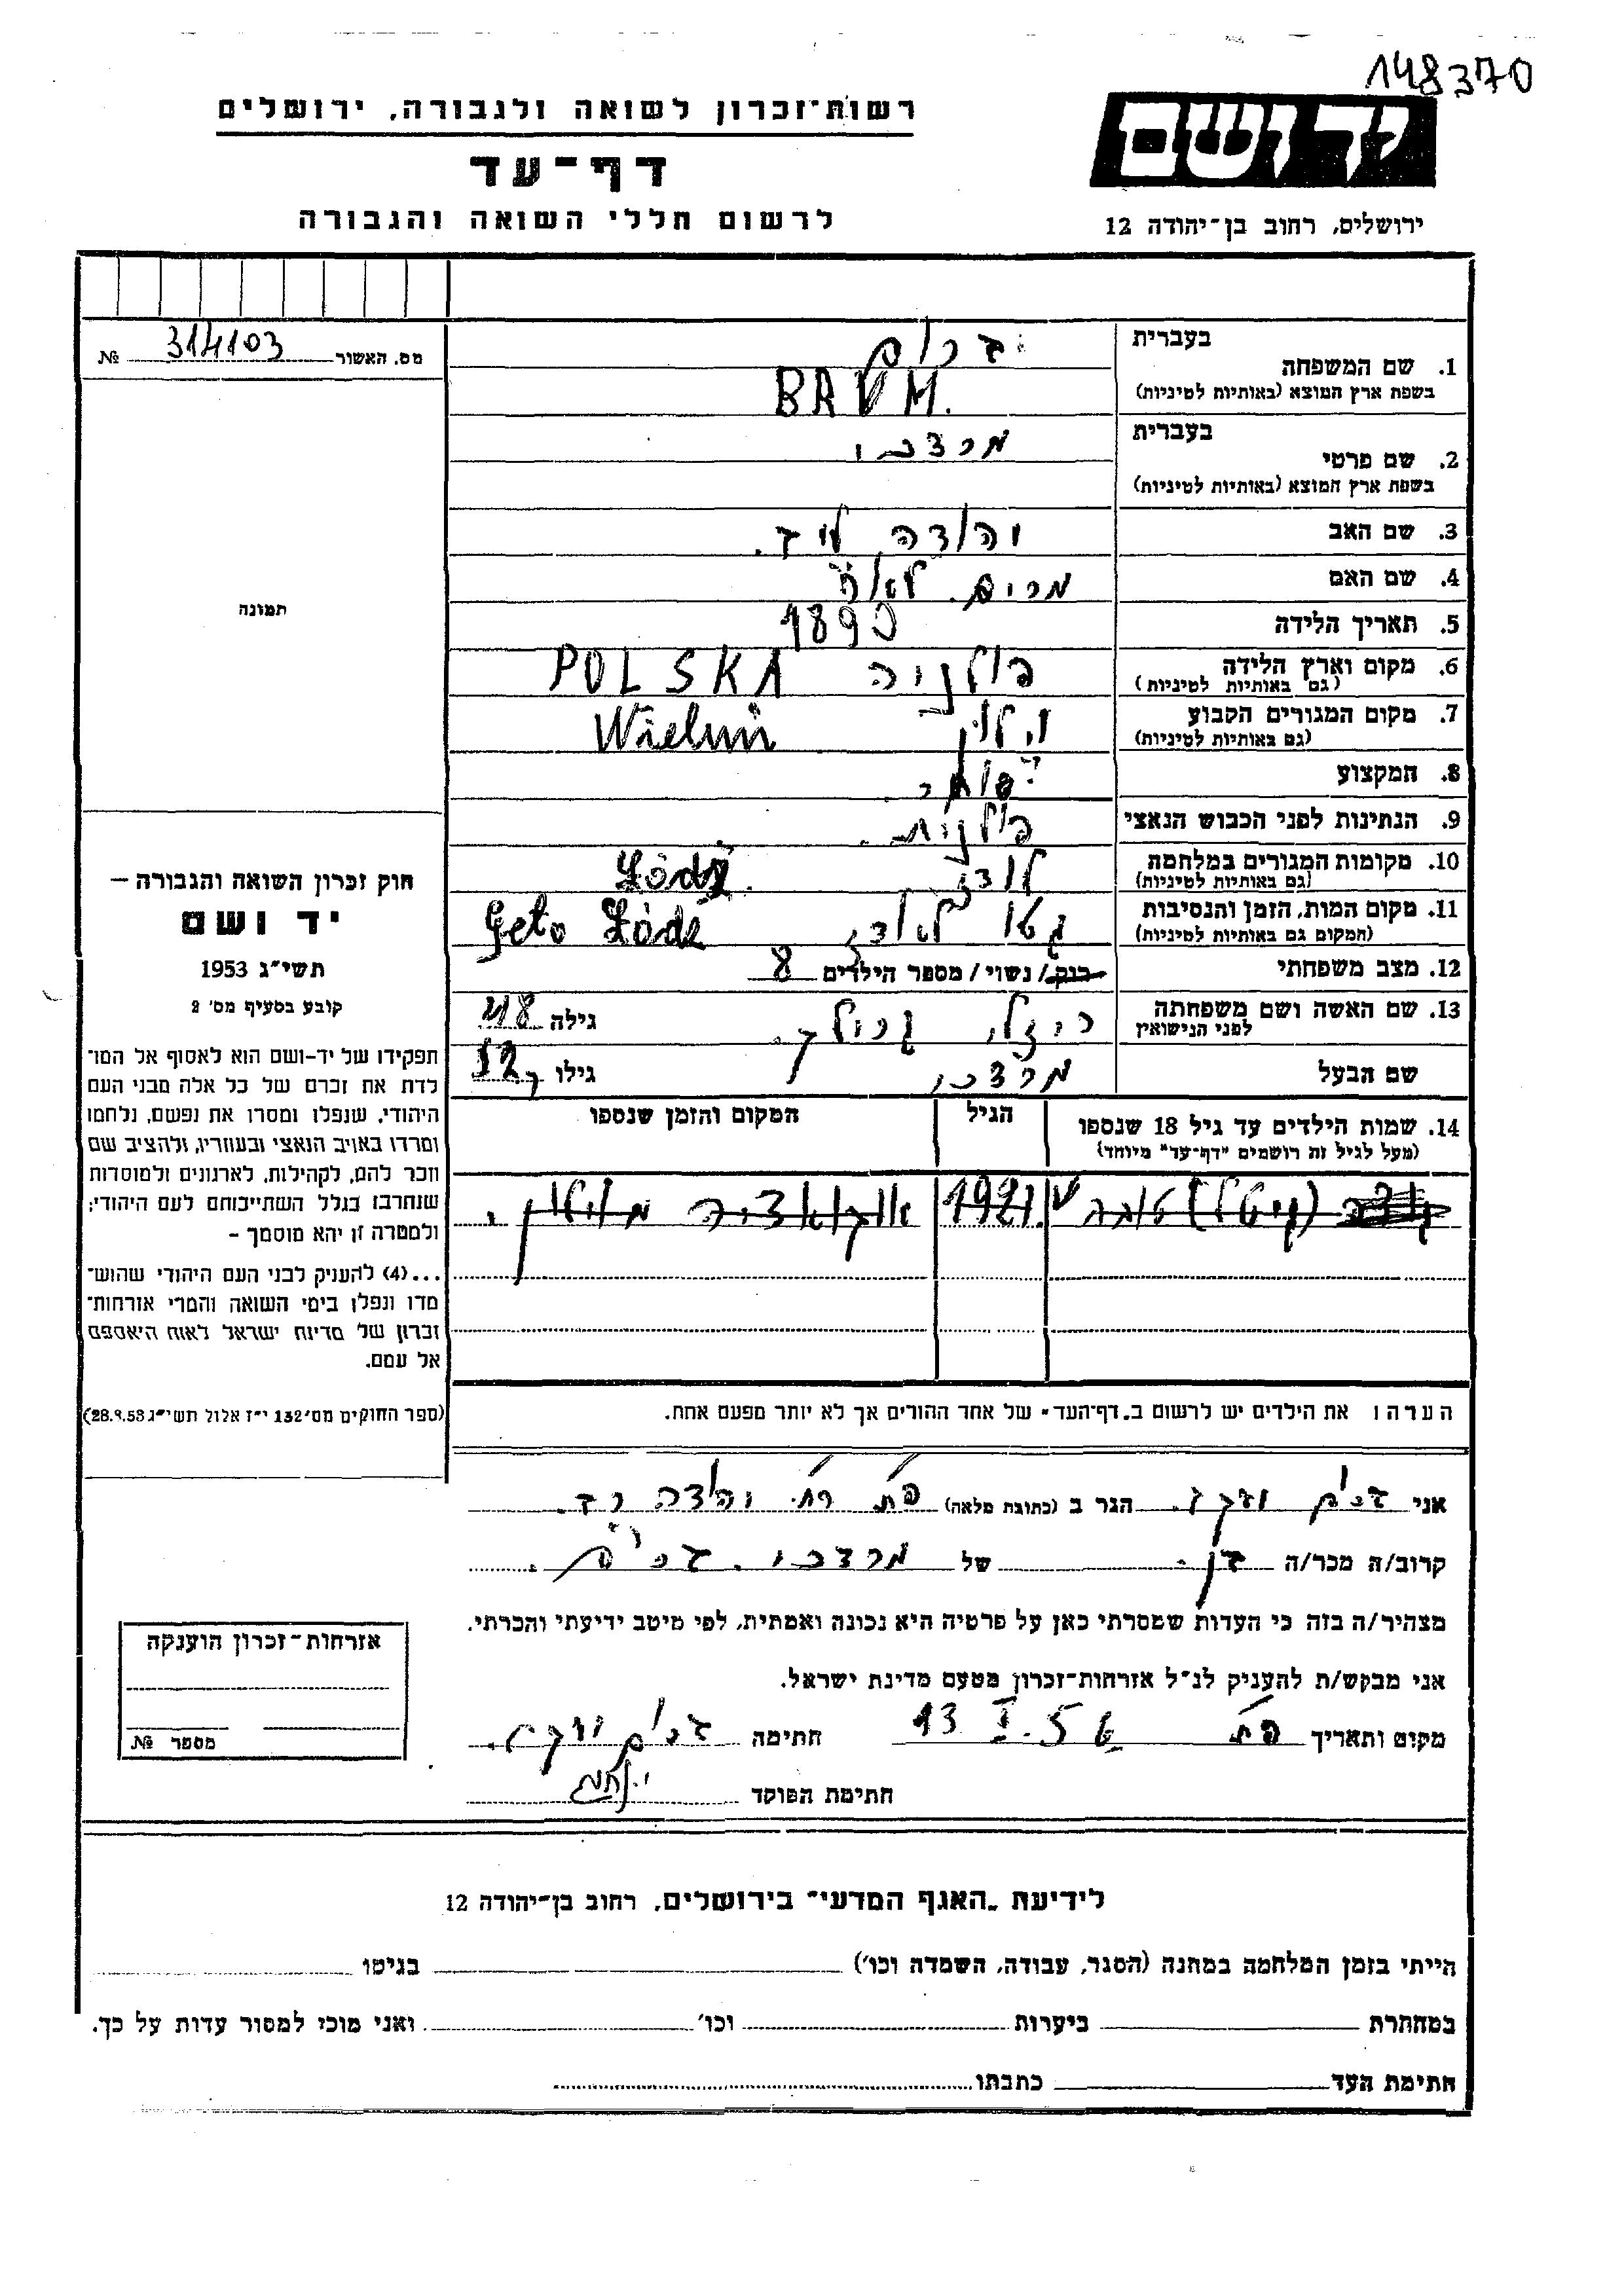 148370
רשות־זכרון לשואה ולגבורה, ירושלים
דף־עד
לרשום חללי השואה והגבורה
יד ושם
ירושלים, רחוב בן־יהודה 12
מס. האשור 314103 №
תמונה
חוק זכרון השואה והגבורה —
יד ושם
תשי״ג 1953
קובע בסעיף מס׳ 2
תפקידו של יד-ושם הוא לאסוף אל המו־
לדת את זכרם של כל אלה מבני העם
היהודי, שנפלו ומסרו את נפשם, נלחמו
ומרדו באויב הנאצי ובעוזריו, ולהציב שם
וזכר להם, לקהילות, לארגונים ולמוסדות
שנחרבו בגלל השתייכותם לעם היהודי;
ולמטרה זו יהא מוסמך –
...(4) להעניק לבני העם היהודי שהוש־
מדו ונפלו בימי השואה והמרי אזרחות־
זכרון של מדינת ישראל לאות היאספם
אל עמם.
(ספר החוקים מס׳ 132 י״ז אלול תשי״ג 28.9.53)
בעברית
1. שם המשפחה
בשפת ארץ המוצא (באותיות לטיניות) BAUM.
בעברית מרדכי
2. שם פרטי
בשפת ארץ המוצא (באותיות לטיניות)
3. שם האב יהודה ליב.
4. שם האם מרים. לאה
5. תאריך הלידה 1890
6. מקום וארץ הלידה פולניה POLSKA
(גם באותיות לטיניות)
7. מקום המגורים הקבוע וילון Wieluń
(גם באותיות לטיניות)
8. המקצוע סוחר.
9. הנתינות לפני הכבוש הנאצי פולנית.
10. מקומות המגורים במלחמה לודז Łódź.
(גם באותיות לטיניות)
11. מקום המות, הזמן והנסיבות גטו לודז, Geto Łódź
(המקום גם באותיות לטיניות)
12. מצב משפחתי רווק / נשוי / מספר הילדים 8
13. שם האשה ושם משפחתה גילה 48
לפני הנישואין
שם הבעל מרדכי גילו 52
14. שמות הילדים עד גיל 18 שנספו הגיל המקום והזמן שנספו
(מעל לגיל זה רושמים ״דף־עד״ מיוחד)
1921
הערה: את הילדים יש לרשום ב„דף־העד״ של אחד ההורים אך לא יותר מפעם אחת.
אני הגר ב (כתובת מלאה)
קרוב/ה מכר/ה בן. של מרדכי. בוים.
מצהיר/ה בזה כי העדות שמסרתי כאן על פרטיה היא נכונה ואמתית, לפי מיטב ידיעתי והכרתי.
אני מבקש/ת להעניק לנ״ל אזרחות־זכרון מטעם מדינת ישראל.
מקום ותאריך 13 I. 56 חתימה
חתימת הפוקד
אזרחות־זכרון הוענקה
מספר №
לידיעת „האגף המדעי״ בירושלים, רחוב בן־יהודה 12
הייתי בזמן המלחמה במחנה (הסגר, עבודה, השמדה וכו׳) בגיטו
במחתרת ביערות וכו׳ ואני מוכן למסור עדות על כך.
חתימת העד כתבתו